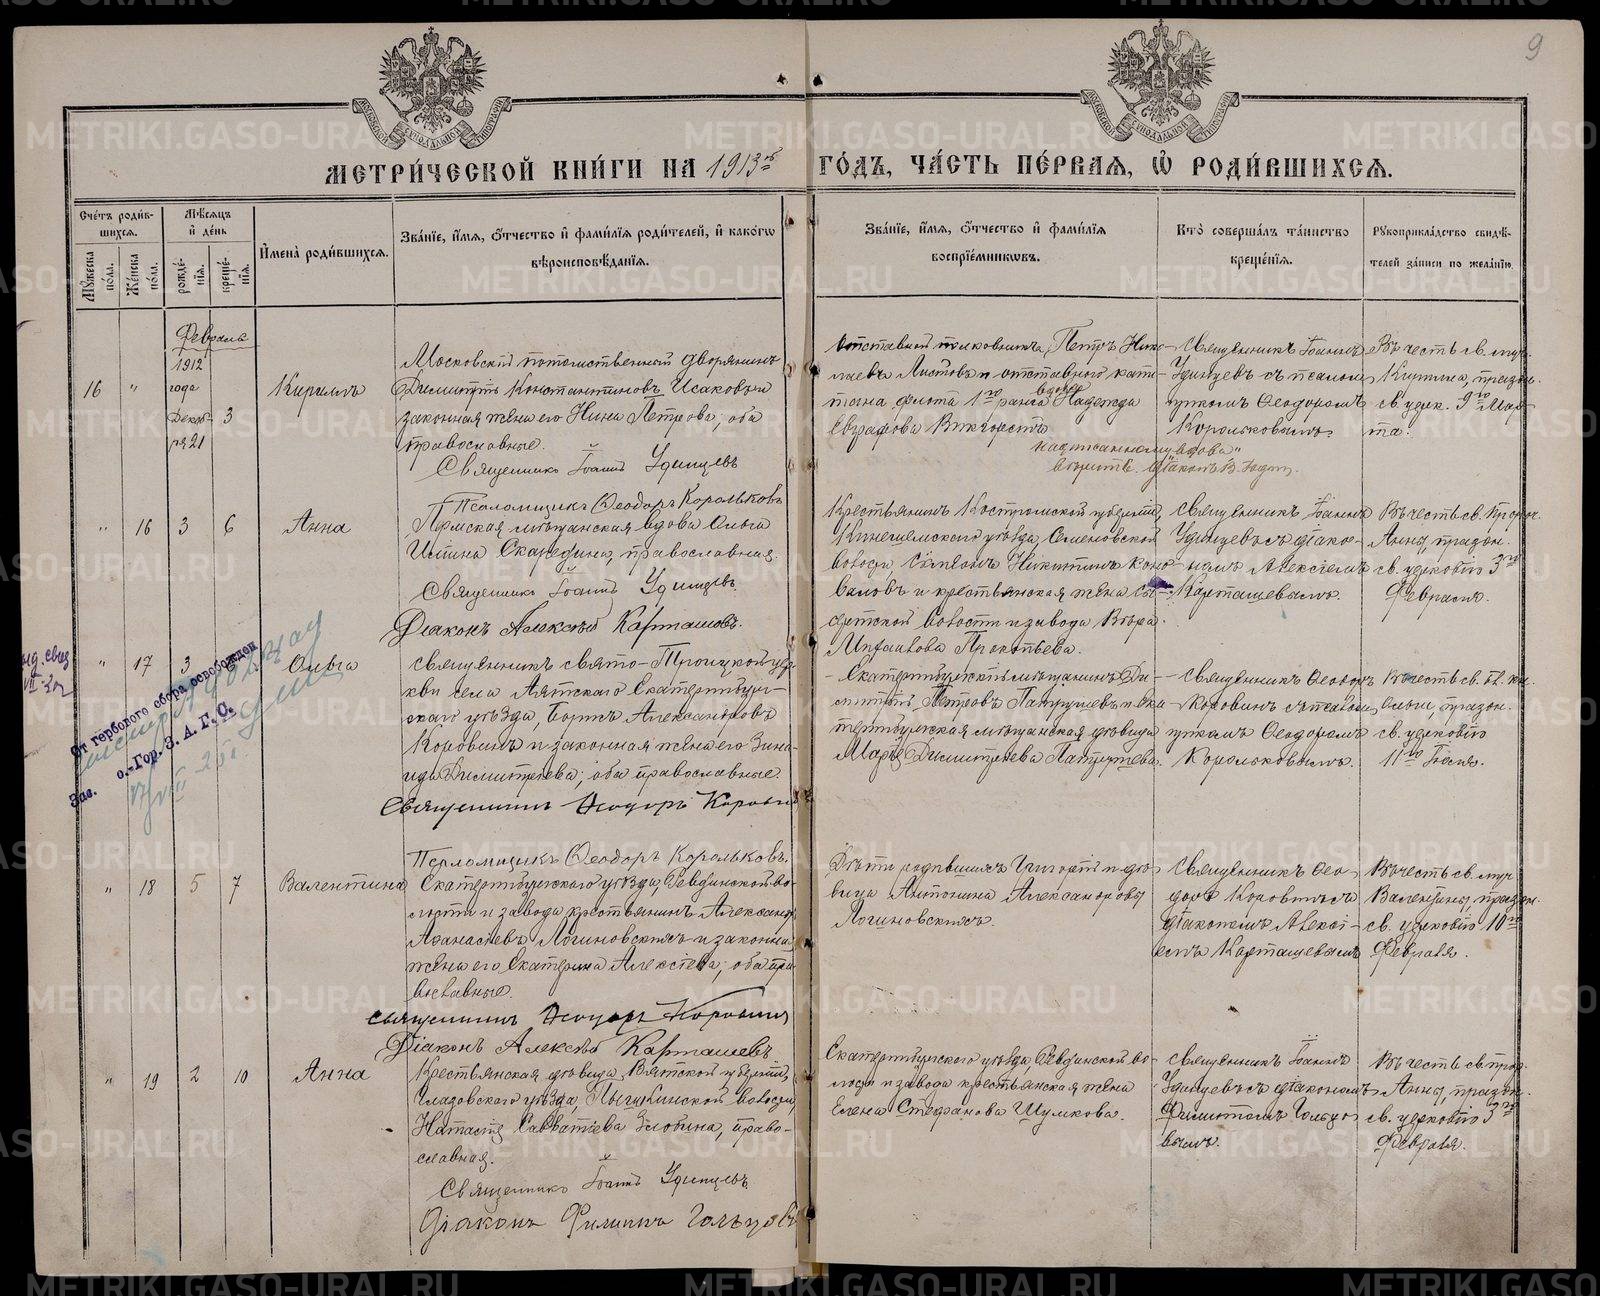 9
МЕТРИ́ЧЕСКОЙ КНИ́ГИ НА 1913й ГО́ДЪ, ЧА́СТЬ ПЕ́РВАЯ, Ѡ҆ РОДИ́ВШИХСЯ.
Сче́тъ роди́в-
шихся.
Мꙋ́жеска по́ла.
Же́нска по́ла.
Мѣ́сяцъ
и҆ де́нь
рожде́-
нїя.
креще́-
нїя.
И҆мена̀ роди́вшихся.
Зва́нїе, и҆́мя, ѻ҆́тчество и҆ фами́лїя роди́телей, и҆ како́гѡ
вѣроисповѣ́данїя.
Зва́нїе, и҆́мя, ѻ҆́тчество и҆ фами́лїя
воспрїе́мникѡвъ.
Кто̀ соверша́лъ та́инство
креще́нїя.
Рꙋкоприкла́дство свидѣ́-
телей за́писи по жела́нїю.
Февраль
16 " 1912 года Декаб-ря 21 3 Кириллъ
Московскій потомственный дворянинъ
Димитрій Константиновъ Исаковъ и
законная жена его Нина Петрова; оба
православные.
Священникъ Іоаннъ Удинцевъ
Псаломщикъ Ѳеодоръ Корольковъ
Отставной полковникъ Петръ Нико-
лаевъ Листовъ и отставного капи-
тана флота 1го ранга вдова Надежда
Евграфова
надписанному "вдова"
вѣрить. Діаконъ В.
Священникъ Іоаннъ
Удинцевъ съ псалом-
щикомъ Ѳеодоромъ
Корольковымъ.
Въ честь св. муч.
Кирилла, праздн.
св. церк. 9го Мар-
та.
" 16 3 6 Анна
Пермская мѣщанская вдова Ольга
Ильина Скаредина, православная.
Священникъ Іоаннъ Удинцевъ.
Діаконъ Алексѣй Карташевъ.
Крестьянинъ Костромской губерніи,
Кинешемскаго уѣзда, Семеновской
волости Симеонъ Никитинъ Коно-
валовъ и крестьянская жена Сы-
сертской волости и завода Вѣра
Михаилова Прокопьева.
Священникъ Іоаннъ
Удинцевъ съ діако-
номъ Алексіемъ
Карташевымъ.
Въ честь св. Пророч.
Анны, праздн.
св. церковію 3го
Февраля.
" 17 3 6 Ольга
От гербового сбора освобожден
о.-Гор. З. А. Г. С.
Зав.
Священникъ Свято-Троицкой цер-
кви села Аятскаго Екатеринбург-
скаго уѣзда, Борисъ Александровъ
Коровинъ и законная жена его Зина-
ида Димитріева; оба православные.
Священникъ Ѳеодоръ Коровинъ
Псаломщикъ Ѳеодоръ Корольковъ.
Екатеринбургскій мѣщанинъ Ди-
митрій Петровъ Патрушевъ и Ека-
теринбургская мѣщанская дѣвица
Марія Димитріева Патрушева.
Священникъ Ѳеодоръ
Коровинъ съ псалом-
щикомъ Ѳеодоромъ
Корольковымъ.
Въ честь св. бл. кн.
Ольги, праздн.
св. церковію
11го Іюля.
" 18 5 7 Валентина
Екатеринбургскаго уѣзда, Ревдинской во-
лости и завода крестьянинъ Александръ
Аѳанасіевъ Логиновскихъ и законная
жена его Екатерина Алексіева; оба пра-
вославные.
Священникъ Ѳеодоръ Коровинъ
Діаконъ Алексѣй Карташевъ
Дѣти родившихъ Григорій и дѣ-
вица Антонина Александровы
Логиновскихъ.
Священникъ Ѳео-
доръ Коровинъ съ
діакономъ Алексі-
емъ Карташевымъ
Въ честь св. муч.
Валентины, праздн.
св. церковію 10го
Февраля.
" 19 2 10 Анна
Крестьянская дѣвица Вятской губерніи,
Глазовскаго уѣзда, волости,
Наталія Савватіева Злобина, право-
славная.
Священникъ Іоаннъ Удинцевъ
Діаконъ Филиппъ Гольцовъ
Екатеринбургскаго уѣзда, Ревдинской во-
лости и завода крестьянская жена
Елена Стефанова Шумкова.
Священникъ Іоаннъ
Удинцевъ съ діакономъ
Филиппомъ Гольцо-
вымъ.
Въ честь св. прор.
Анны, праздн.
св. церковію 3го
Февраля.
METRIKI.GASO-URAL.RU